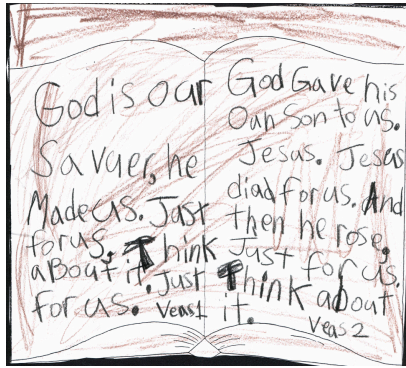 God is our
Savuer, he
Made us. Just
for us, Think
aBout it. Just
for us. Veas 1
God Gave his
Oun Son to us.
Jesus. Jesus
diad for us. And
then he rose,
Just for us.
Think about
it. Veas 2